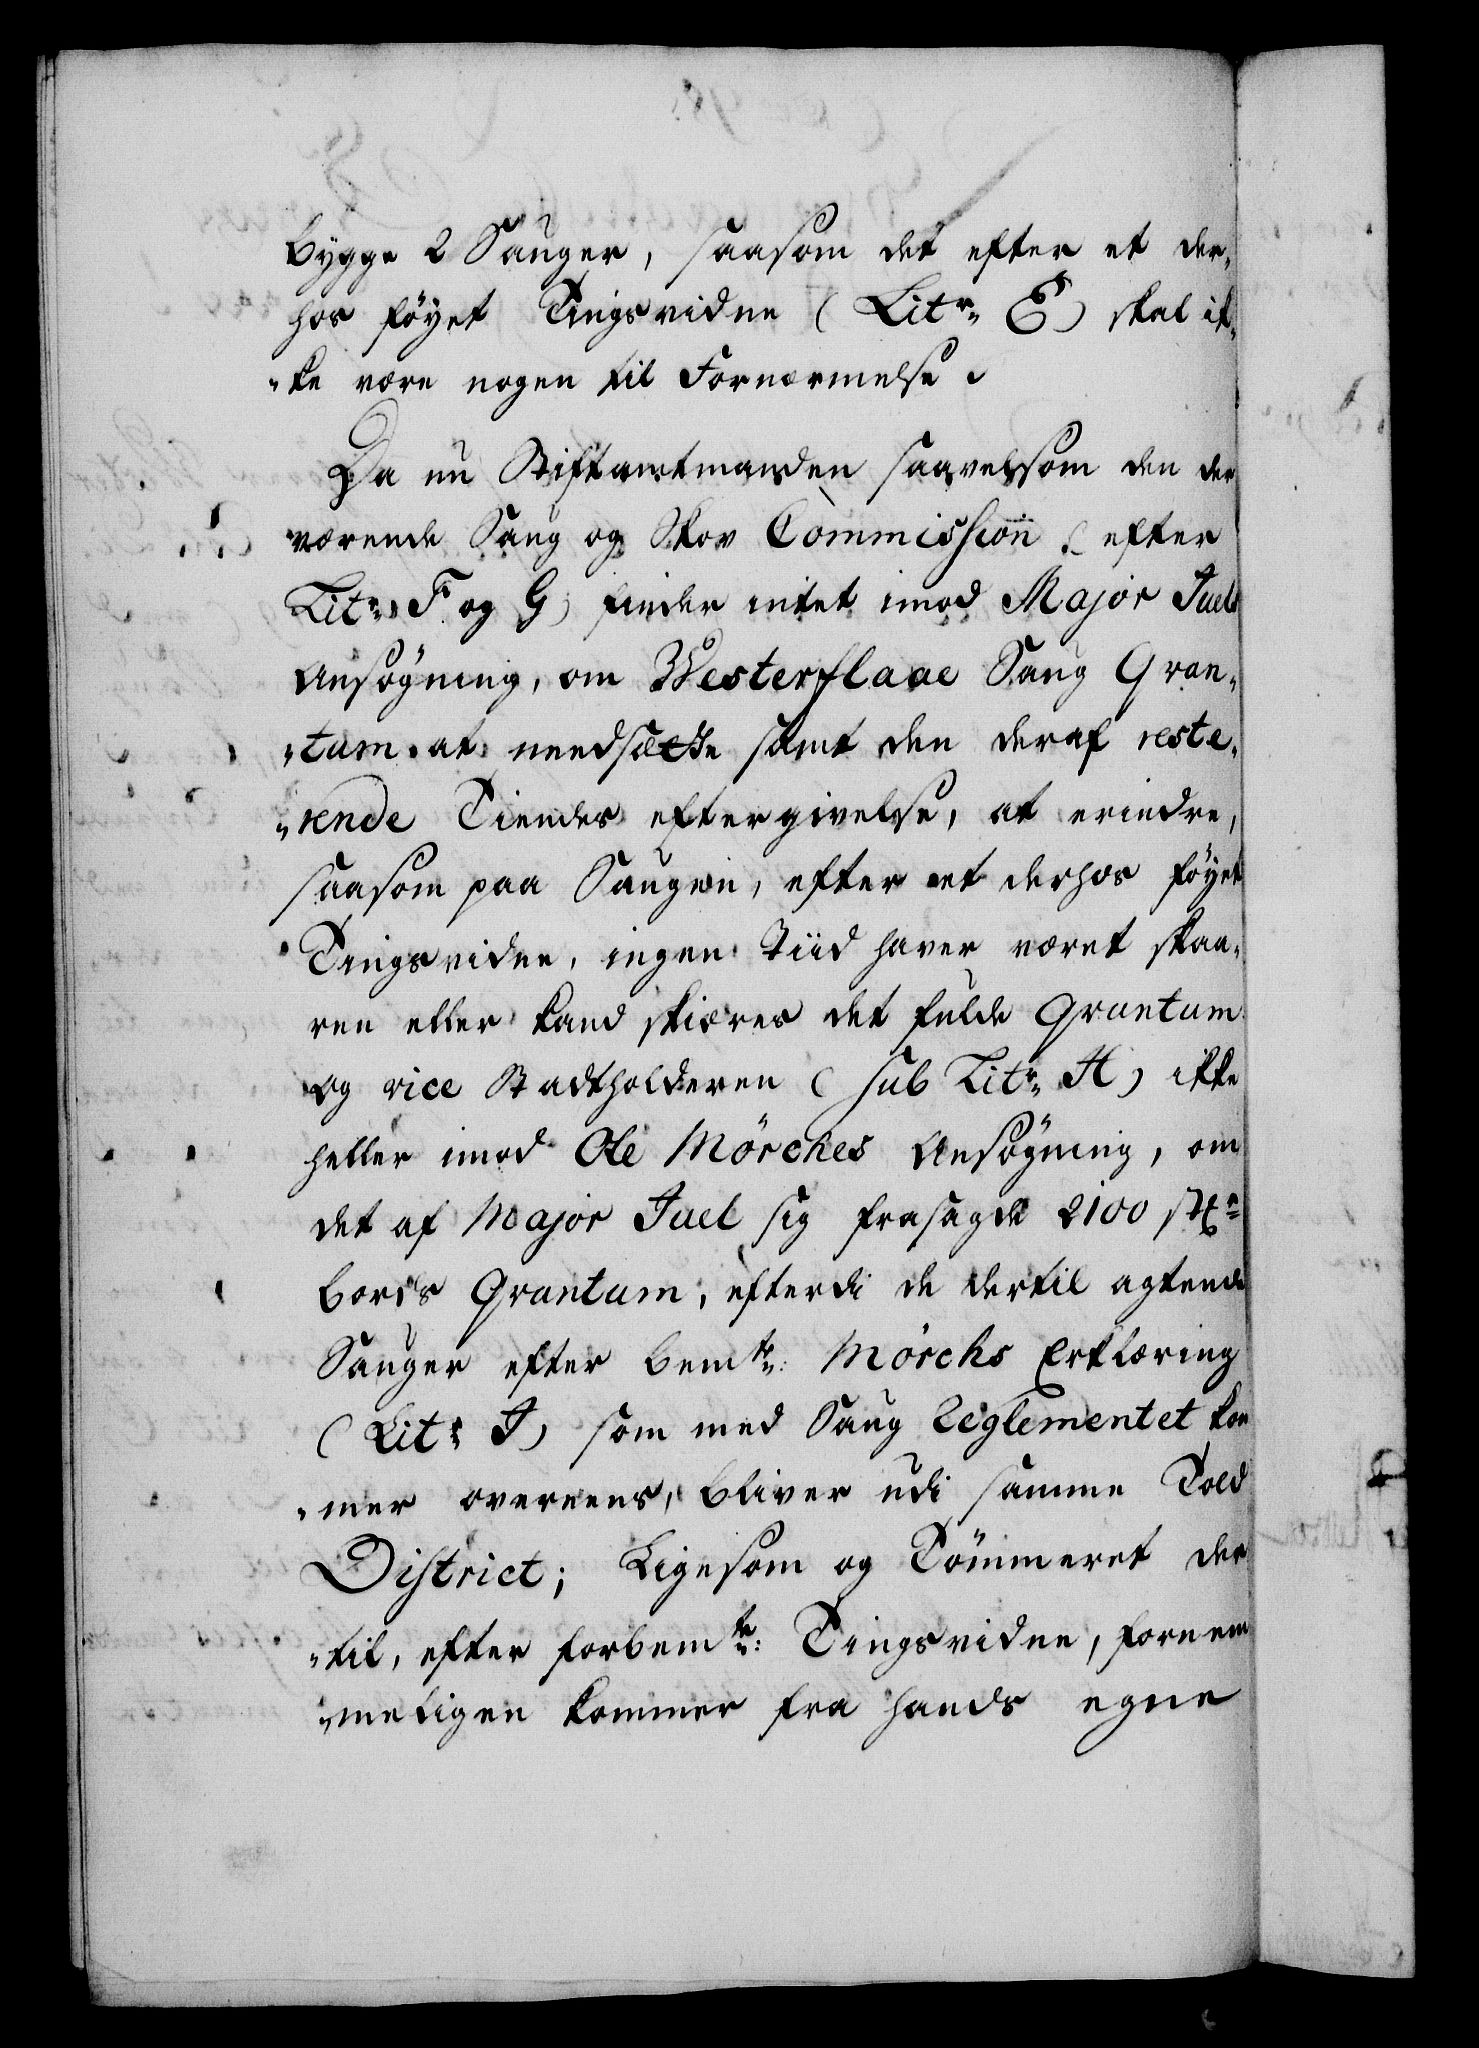 bygge 2 Sauger, saasom det efter et der-
hos föyet Tingsvidne (Litr: E) skal ik-
-ke være nogen til Fornærmelse.
Da nu Stiftamtmanden saavelsom den der
værende Saug og Skov Commission (efter
Litr: F og G) finder intet imod Major Juels
Ansøgning, om Westerflaae Saug Qvan-
-tum at needsætte samt den deraf reste-
-rende Tiendes eftergivelse, at erindre,
saasom paa Saugen, efter et derhos föyet
Tingsvidne, ingen Tiid haver været skaa-
ren eller kand skiæres det fulde Qvantum
og vice Stadtholderen (sub Litr: H) ikke
heller imod Ole Mörches Ansøgning, om
det af Major Juel sig frasagde 2100 stkr
bords Qvantum, efterdi de dertil agtende
Sauger efter bemte: Mörchs Erklæring
(Litr: I) som med Saug Reglementet kom
-mer overeens, bliver udi samme Told
District; Ligesom og Tömmeret der
-til, efter forbemte: Tingsvidne, fornem
-meligen kommer fra hands egne